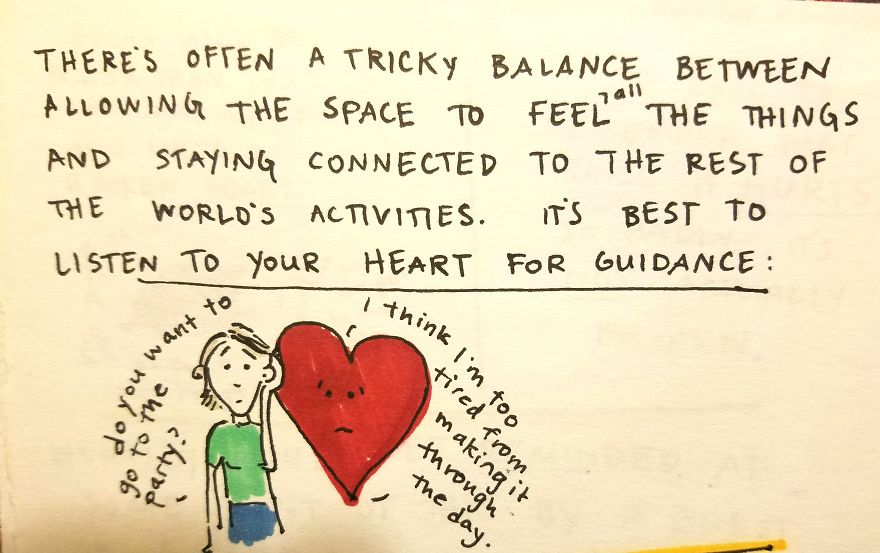 THERE'S OFTEN A TRICKY BALANCE BETWEEN
ALLOWING THE SPACE TO FEEL all THE THINGS
AND STAYING CONNECTED TO THE REST OF
THE WORLD'S ACTIVITIES. IT'S BEST TO
LISTEN TO YOUR HEART FOR GUIDANCE:
do you want to
go to the
party?
I think I'm too
tired from
making it
through
the day.